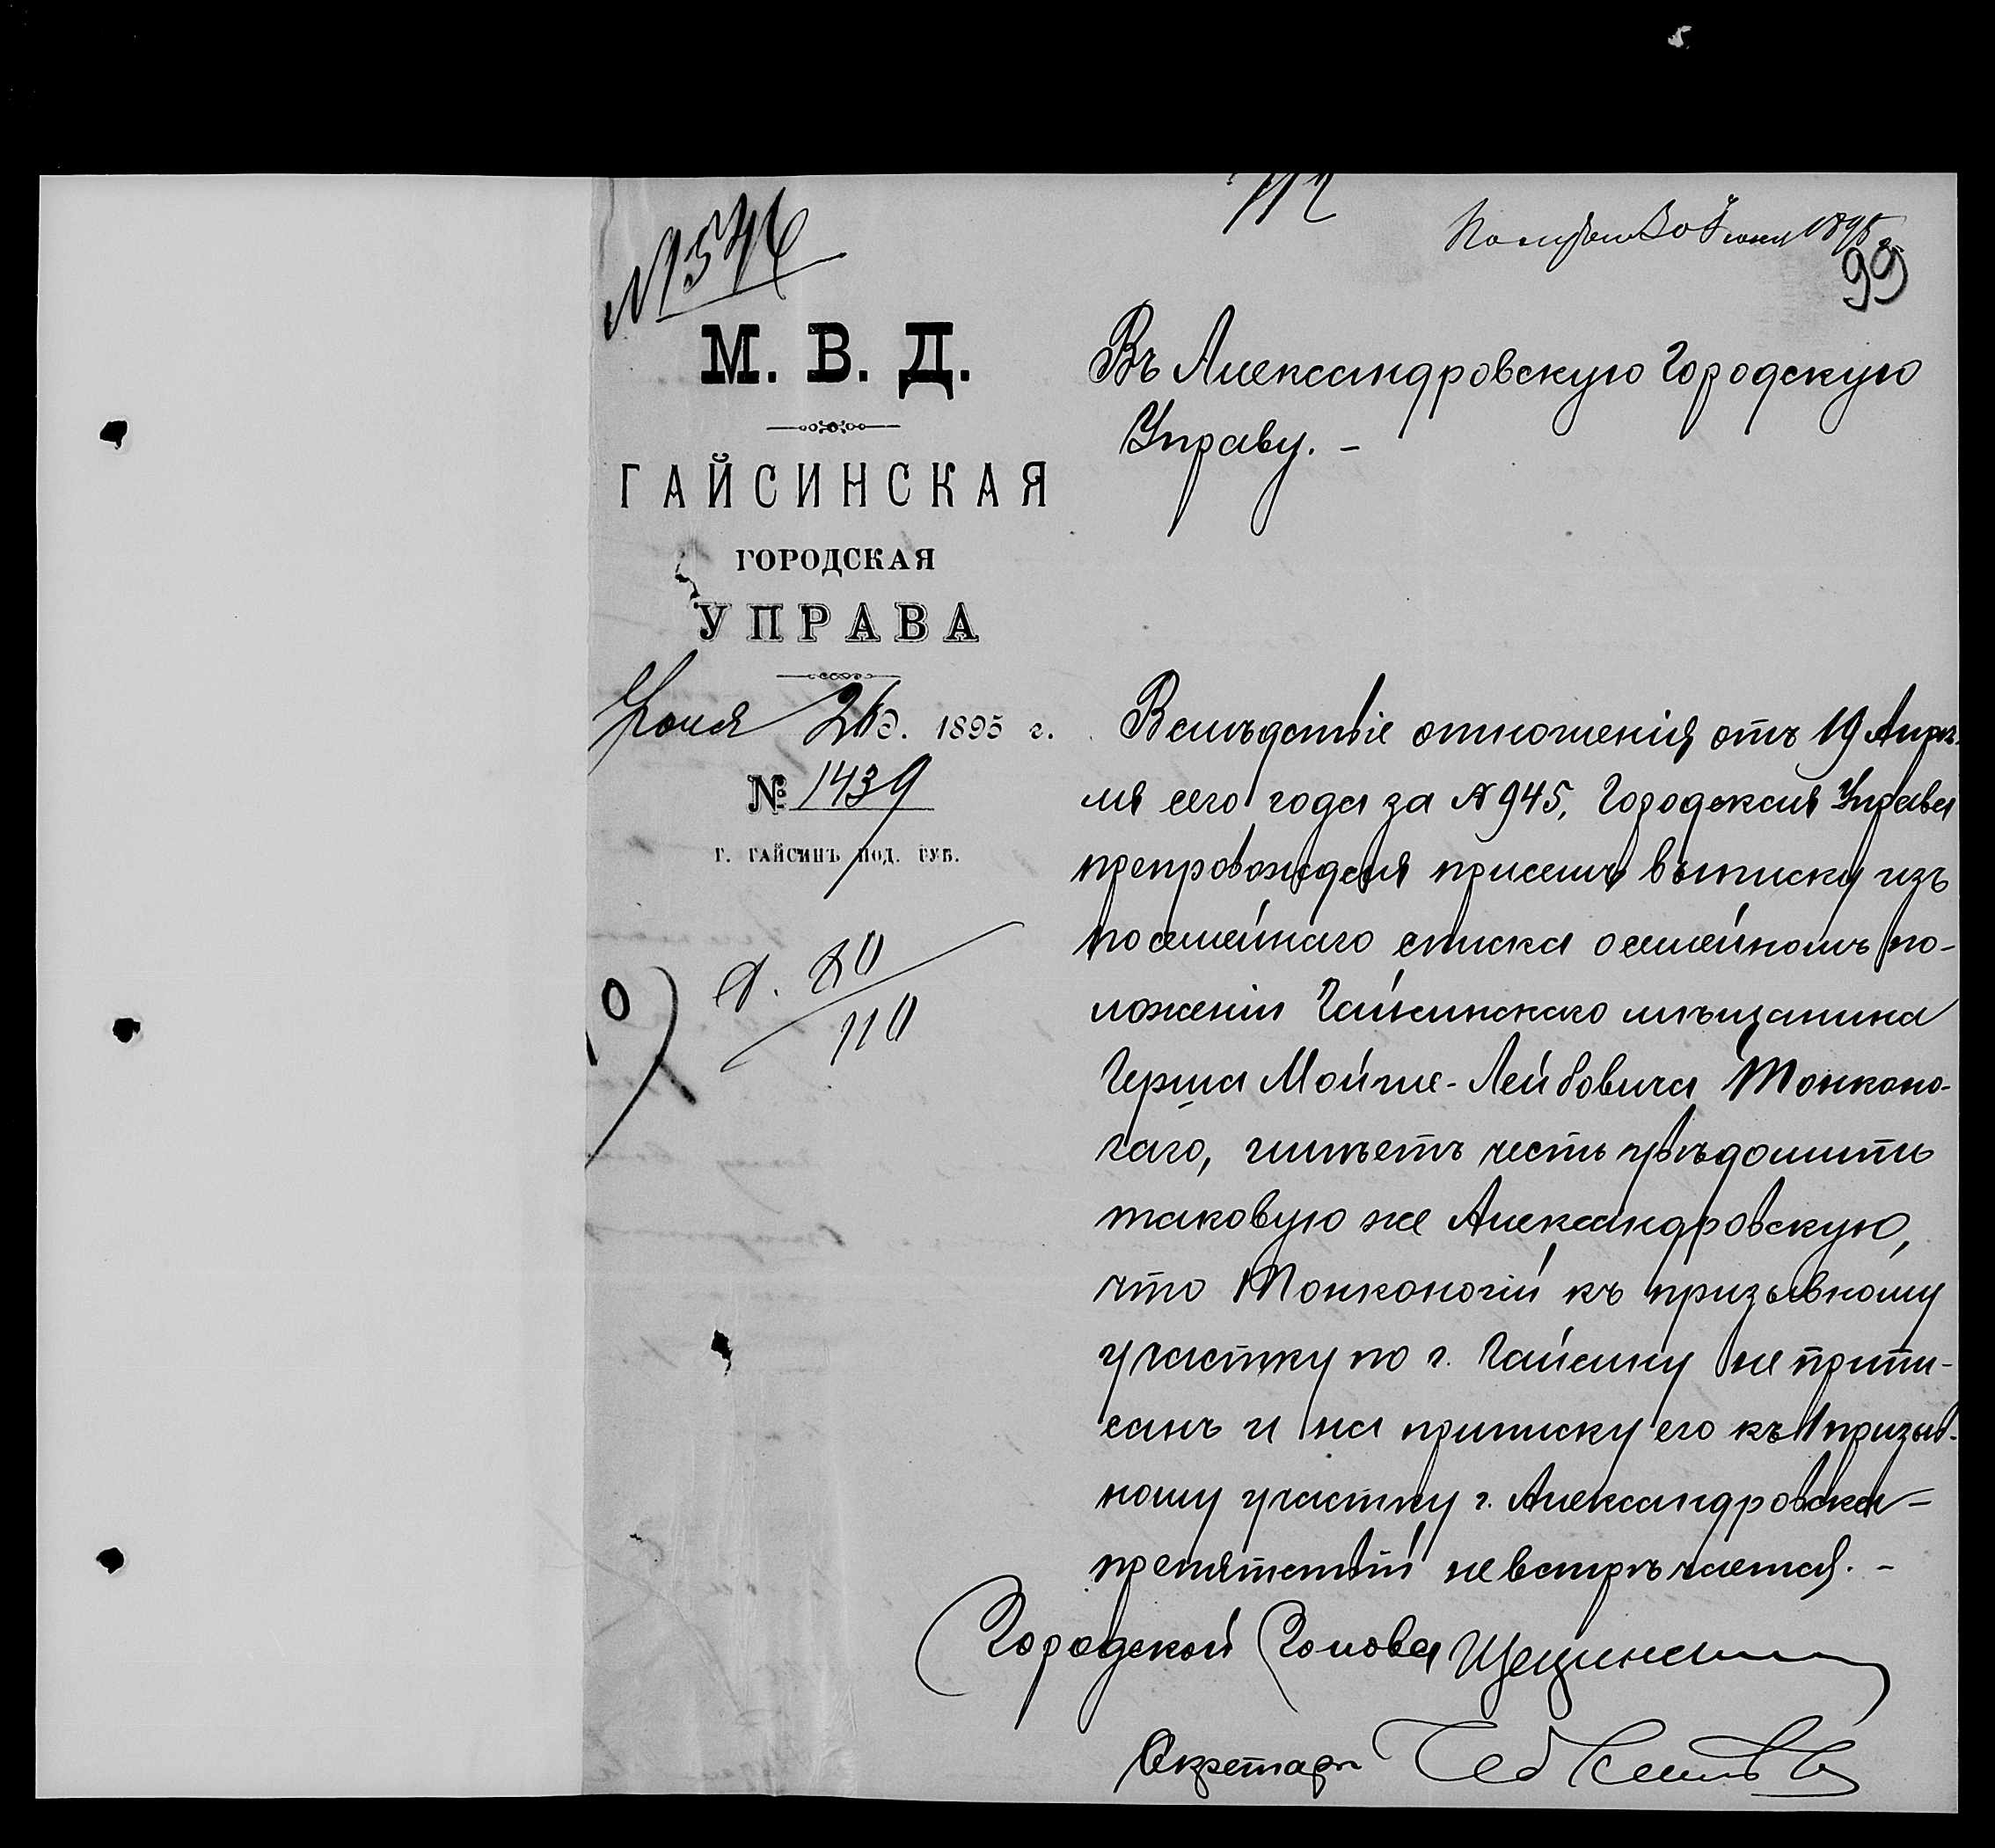 №1546
1895
99
М. В. Д.
ГАЙСИНСКАЯ
ГОРОДСКАЯ
УПРАВА
Іюня 26 д. 1895 г.
№ 1439
Г. ГАЙСИНЪ ПОД. ГУБ.
Въ Александровскую Городскую
Управу. –
Вслѣдствіе отношенія отъ 19 Апрѣ-
ля сего года за № 945, Городская Управа
препровождая присемъ выписку изъ
посемейнаго списка о семейномъ по-
ложеніи Гайсинскаго мѣщанина
Герша Мойше-Лейбовича Тонконо-
гаго, имѣетъ честь увѣдомить
таковую же Александровскую,
что Тонконогій къ призывному
участку по г. Гайсину не припи-
санъ и на приписку его къ призыв-
ному участку г. Александровска –
препятствій не встрѣчается. –
Городской Голова
Секретарь